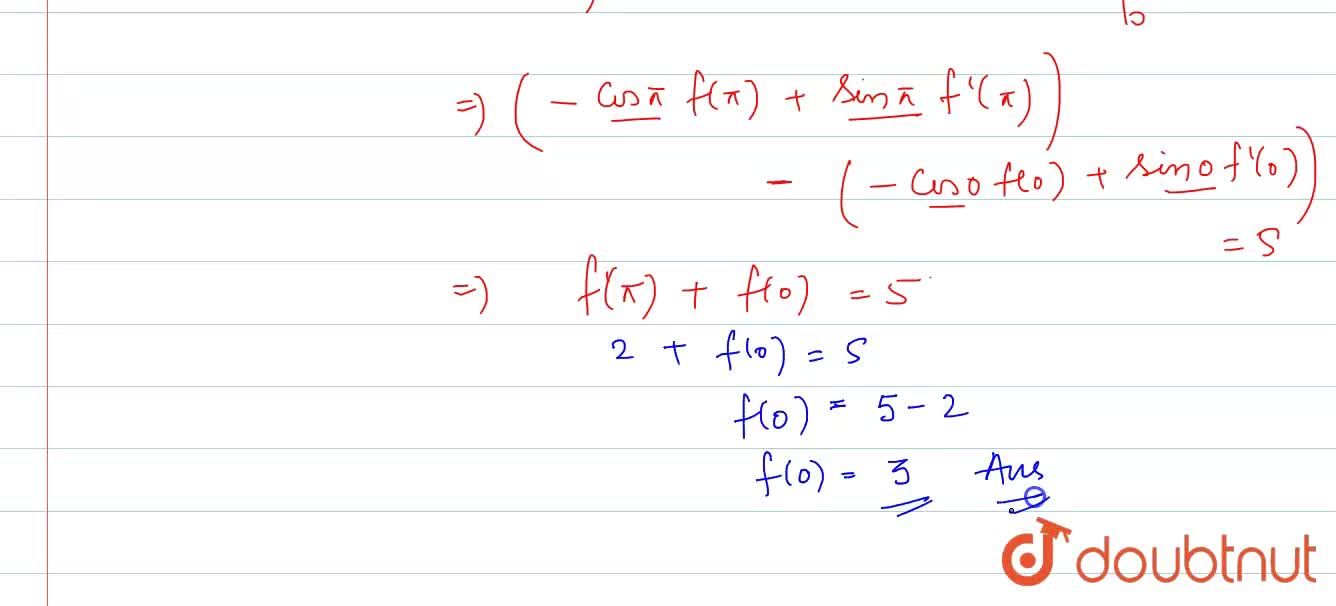 =) ( - cosπ f(π) + sinπ f'(π) )
- ( - cos0 f(0) + sin0 f'(0) )
= 5
=) f(π) + f(0) = 5
2 + f(0) = 5
f(0) = 5 - 2
f(0) = 3 Ans
doubtnut